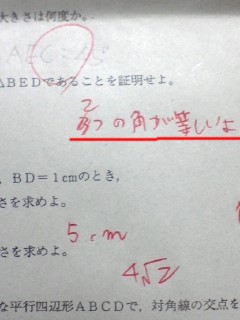 大きさは何度か。
AEC=45°
ABEDであることを証明せよ。
2つの角が等しいよ
, BD=1cmのとき,
さを求めよ。
5cm
さを求めよ。
4√2
な平行四辺形ABCDで, 対角線の交点を